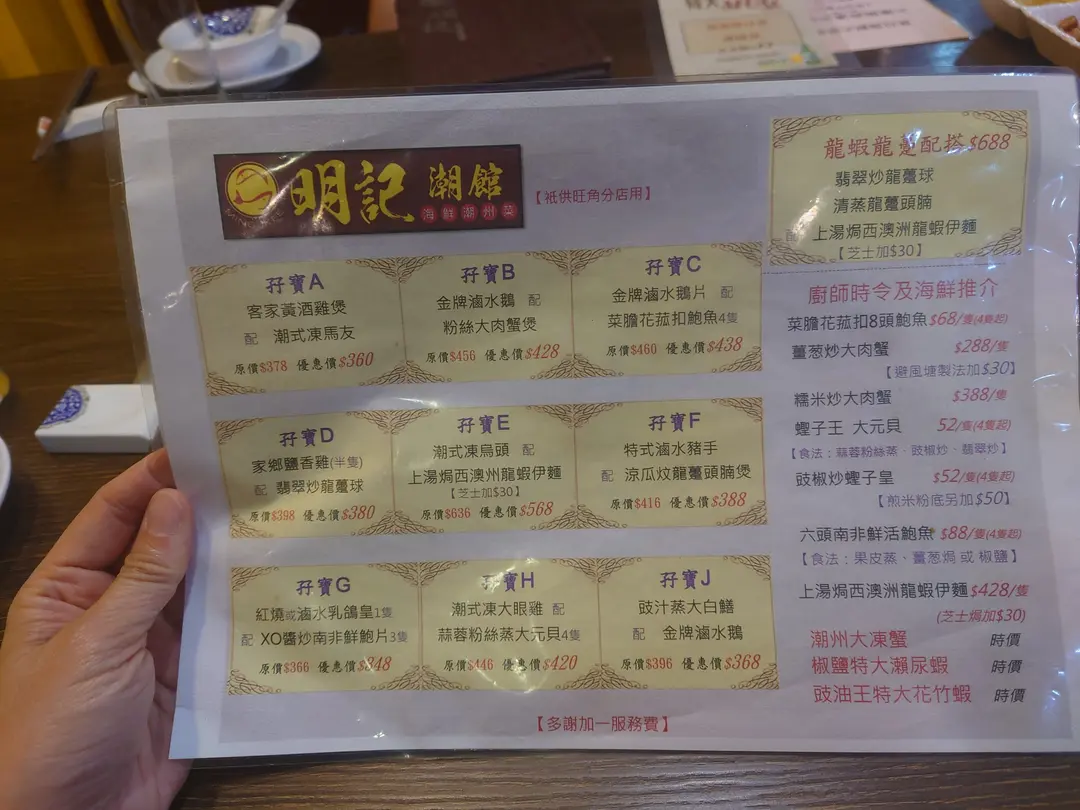 明記 潮館
海鮮潮州菜
【祇供旺角分店用】
孖寶A
客家黃酒雞煲
配 潮式凍馬友
原價$378 優惠價$360
孖寶B
金牌滷水鵝 配
粉絲大肉蟹煲
原價$456 優惠價$428
孖寶C
金牌滷水鵝片 配
菜膽花菇扣鮑魚4隻
原價$460 優惠價$438
孖寶D
家鄉鹽香雞(半隻)
配 翡翠炒龍躉球
原價$398 優惠價$380
孖寶E
潮式凍烏頭 配
上湯焗西澳州龍蝦伊麵
【芝士加$30】
原價$636 優惠價$568
孖寶F
特式滷水豬手
配 涼瓜炆龍躉頭腩煲
原價$416 優惠價$388
孖寶G
紅燒或滷水乳鴿皇1隻
配 XO醬炒南非鮮鮑片3隻
原價$366 優惠價$348
孖寶H
潮式凍大眼雞 配
蒜蓉粉絲蒸大元貝4隻
原價$446 優惠價$420
孖寶J
豉汁蒸大白鱔
配 金牌滷水鵝
原價$396 優惠價$368
【多謝加一服務費】
龍蝦龍躉配搭$688
翡翠炒龍躉球
清蒸龍躉頭腩
配 上湯焗西澳洲龍蝦伊麵
【芝士加$30】
廚師時令及海鮮推介
菜膽花菇扣8頭鮑魚 $68/隻(4隻起)
薑葱炒大肉蟹 $288/隻
【避風塘製法加$30】
糯米炒大肉蟹 $388/隻
蟶子王 大元貝 52/隻(4隻起)
【食法：蒜蓉粉絲蒸、豉椒炒、翡翠炒】
豉椒炒蟶子皇 $52/隻(4隻起)
【煎米粉底另加$50】
六頭南非鮮活鮑魚 $88/隻(4隻起)
【食法：果皮蒸、薑葱焗 或 椒鹽】
上湯焗西澳洲龍蝦伊麵 $428/隻
(芝士焗加$30)
潮州大凍蟹 時價
椒鹽特大瀨尿蝦 時價
豉油王特大花竹蝦 時價